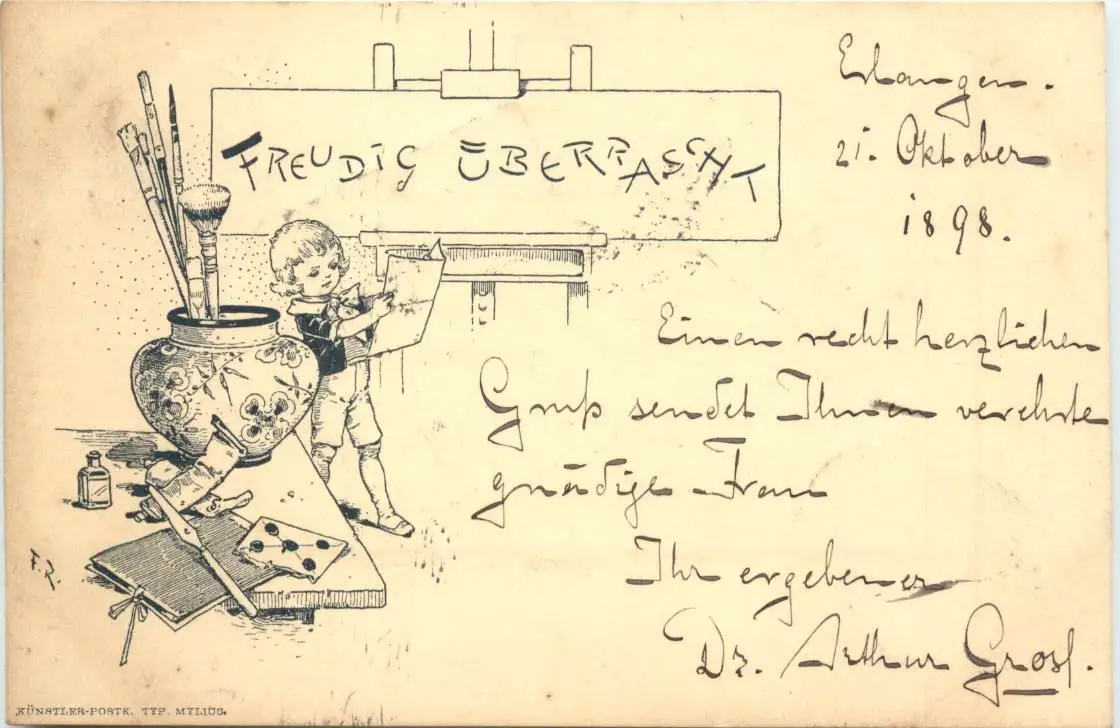 FREUDIG ÜBERRASCHT
Erlangen.
21. Oktober
1898.
Einen recht herzlichen
Gruß sendet Ihnen verehrte
gnädige Frau
Ihr ergebener
Dr. Arthur
F.R.
KÜNSTLER-POSTK. TYP. MYLIUS.